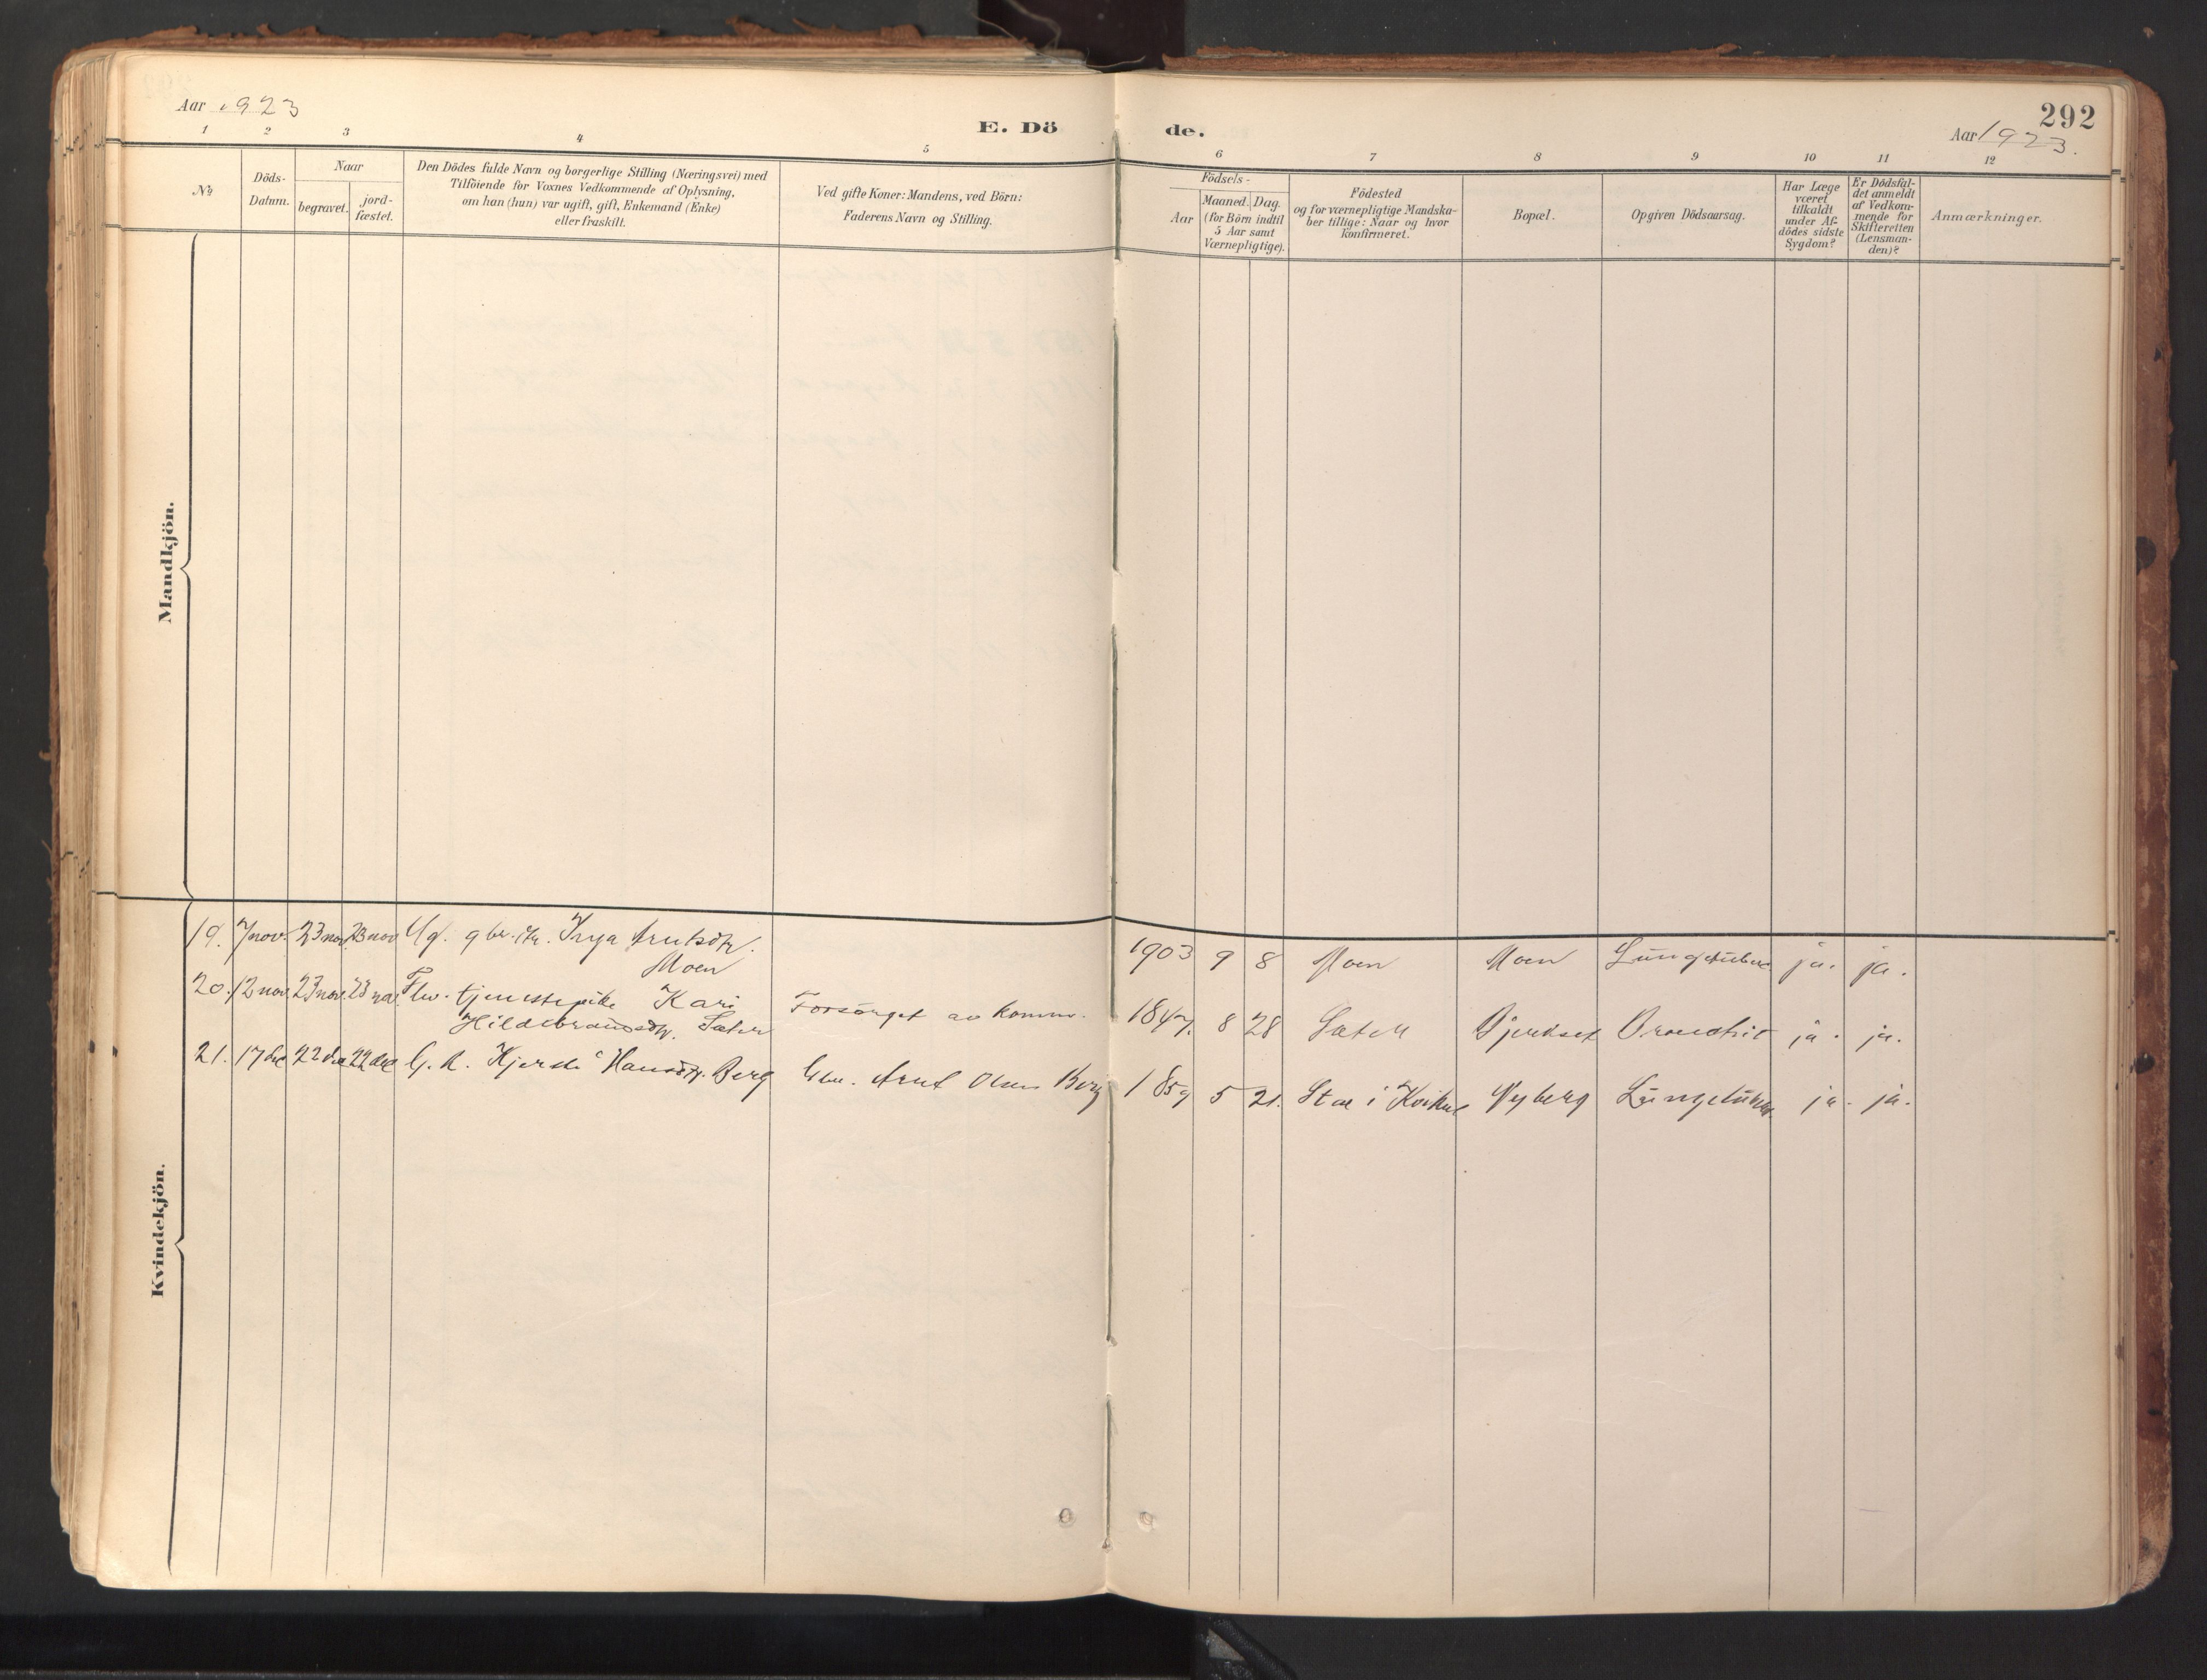 Aar 1923
E. Dö
de.
292
Aar 1923.
1 2 3 4 5 6 7 8 9 10 11 12
No
Döds-
Datum.
Naar
begravet.
jord-
fæstet.
Den Dödes fulde Navn og borgerlige Stilling (Næringsvei) med
Tilföiende for Voxnes Vedkommende af Oplysning,
om han (hun) var ugift, gift, Enkemand (Enke)
eller fraskilt.
Ved gifte Koner: Mandens, ved Börn:
Faderens Navn og Stilling.
Födsels-
Aar
Maaned. Dag.
(for Börn indtil
5 Aar samt
Værnepligtige).
Födested
og for værnepligtige Mandska-
ber tillige: Naar og hvor
konfirmeret.
Bopæl.
Opgiven Dödsaarsag.
Har Læge
været
tilkaldt
under Af-
dödes sidste
Sygdom?
Er Dödsfal-
det anmeldt
af Vedkom-
mende for
Skifteretten
(Lensman-
den)?
Anmærkninger.
Mandkjön.
Kvindekjön.
19. 7 nov. 23 nov 23 nov Ug. gbr.dtr. Inga Arntsdtr. 1903 9 8 Moen Moen ja. ja.
Moen
20. 12 nov. 23 nov. 23 nov. tjenestepike Kari Forsörget av komm. 1847. 8 28 Sæter ja. ja.
Hildebrandsdtr. Sæter
21. 17 dec 22 dec 22 dec G. k. Hansdtr. Berg Arnt Olsen Berg 1859 5 21. i Kvikne Nyberg ja. ja.